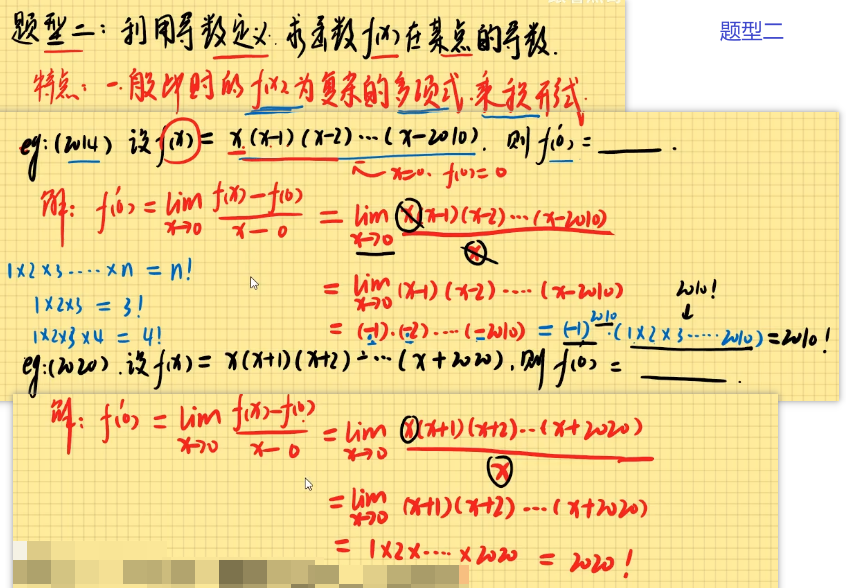 题型二：利用导数定义.求函数f(x)在某点的导数.
题型二
特点：一般此时的f(x)为复杂的多项式.乘积形式.
eg:(2014) 设f(x) = x(x-1)(x-2)···(x-2010). 则f'(0) = ____ .
x=0. f(0)=0
解: f'(0) = lim x→0 f(x)-f(0) / x-0 = lim x→0 x(x-1)(x-2)···(x-2010) / x
1×2×3·····×n = n!
= lim x→0 (x-1)(x-2)·····(x-2010)
2010!
↓
1×2×3 = 3!
= (-1)·(-2)·····(-2010) = (-1)^2010·(1×2×3·····2010) = 2010!
1×2×3×4 = 4!
eg:(2020).设f(x) = x(x+1)(x+2)····(x+2020).则f'(0) = ____ .
解: f'(0) = lim x→0 f(x)-f(0) / x-0 = lim x→0 x(x+1)(x+2)···(x+2020) / x
= lim x→0 (x+1)(x+2)····(x+2020)
= 1×2×·····×2020 = 2020!